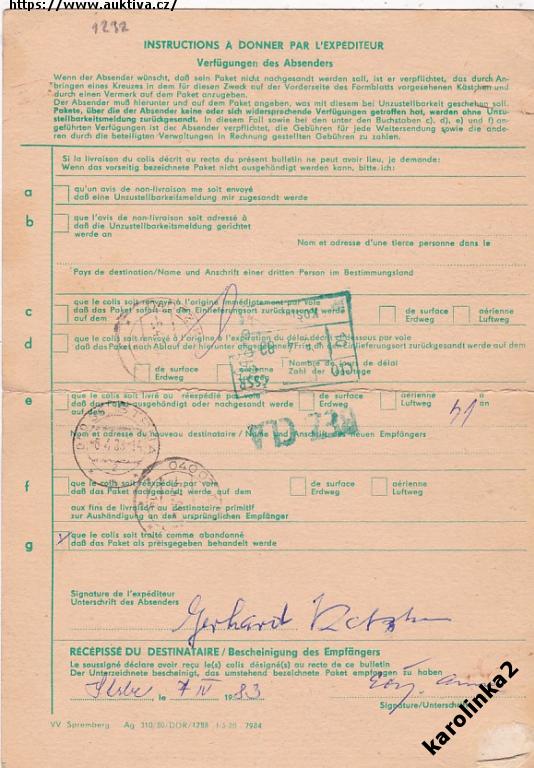 https://www.auktiva.cz/
1292
INSTRUCTIONS A DONNER PAR L'EXPÉDITEUR
Verfügungen des Absenders
Wenn der Absender wünscht, daß sein Paket nicht nachgesandt werden soll, ist er verpflichtet, das durch An-
bringen eines Kreuzes in dem für diesen Zweck auf der Vorderseite des Formblatts vorgesehenen Kästchen und
durch einen Vermerk auf dem Paket anzugeben.
Der Absender muß hierunter und auf dem Paket angeben, was mit diesem bei Unzustellbarkeit geschehen soll.
Pakete, über die der Absender keine oder sich widersprechende Verfügungen getroffen hat, werden ohne Unzu-
stellbarkeitsmeldung zurückgesandt. In diesem Fall sowie bei den unter den Buchstaben c), d), e) und f) an-
geführten Verfügungen ist der Absender verpflichtet, die Gebühren für jede Weitersendung sowie die ande-
ren durch die beteiligten Verwaltungen in Rechnung gestellten Gebühren zu zahlen.
Si la livraison du colis décrit au recto du présent bulletin ne peut avoir lieu, je demande:
Wenn das vorseitig bezeichnete Paket nicht ausgehändigt werden kann, bitte ich:
a
qu'un avis de non-livraison me soit envoyé
daß eine Unzustellbarkeitsmeldung mir zugesandt werde
b
que l'avis de non-livraison soit adressé à
daß die Unzustellbarkeitsmeldung gerichtet
werde an
Nom et adresse d'une tierce personne dans le
Pays de destination/Name und Anschrift einer dritten Person im Bestimmungsland
c
que le colis soit renvoyé à l'origine immédiatement par voie
daß das Paket sofort an den Einlieferungsort zurückgesandt werde
auf dem
de surface
Erdweg
aérienne
Luftweg
d
que le colis soit renvoyé à l'origine à l'expiration du délai décrit ci-dessous par voie
daß das Paket nach Ablauf der hierunter angegebenen Frist an den Einlieferungsort zurückgesandt werde auf dem
de surface
Erdweg
aérienne
Luftweg
Nombre de jours de délai
Zahl der Tage
ČSSR
e
que le colis soit livré ou réexpédié par voie
daß das Paket ausgehändigt oder nachgesandt werde
auf dem
de surface
Erdweg
aérienne
Luftweg
à
an
41
BEZ CLA
Nom et adresse du nouveau destinataire / Name und Anschrift des neuen Empfängers
-6.4.83-15
0400
f
que le colis soit réexpédié par voie
daß das Paket nachgesandt werde auf dem
de surface
Erdweg
aérienne
Luftweg
aux fins de livraison au destinataire primitif
zur Aushändigung an den ursprünglichen Empfänger
g
que le colis soit traité comme abandonné
daß das Paket als preisgegeben behandelt werde
Signature de l'expéditeur
Unterschrift des Absenders
Gerhard
RÉCÉPISSÉ DU DESTINATAIRE / Bescheinigung des Empfängers
Le soussigné déclare avoir reçu le(s) colis désigné(s) au recto de ce bulletin
Der Unterzeichnete bescheinigt, das umstehend bezeichnete Paket empfangen zu haben
, le 7 IV 1983
Signature/Unterschrift
VV Spremberg Ag 310/80/DDR/4288 1-5-20 7984
karolinka2